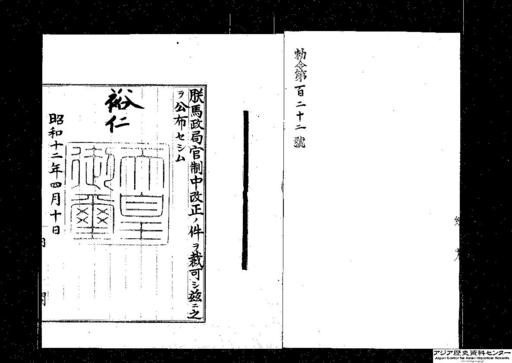 勅令第百二十二號
朕馬政局官制中改正ノ件ヲ裁可シ玆ニ之
ヲ公布セシム
裕仁
天皇御璽
昭和十二年四月十日
アジア歴史資料センター
Japan Center for Asian Historical Records